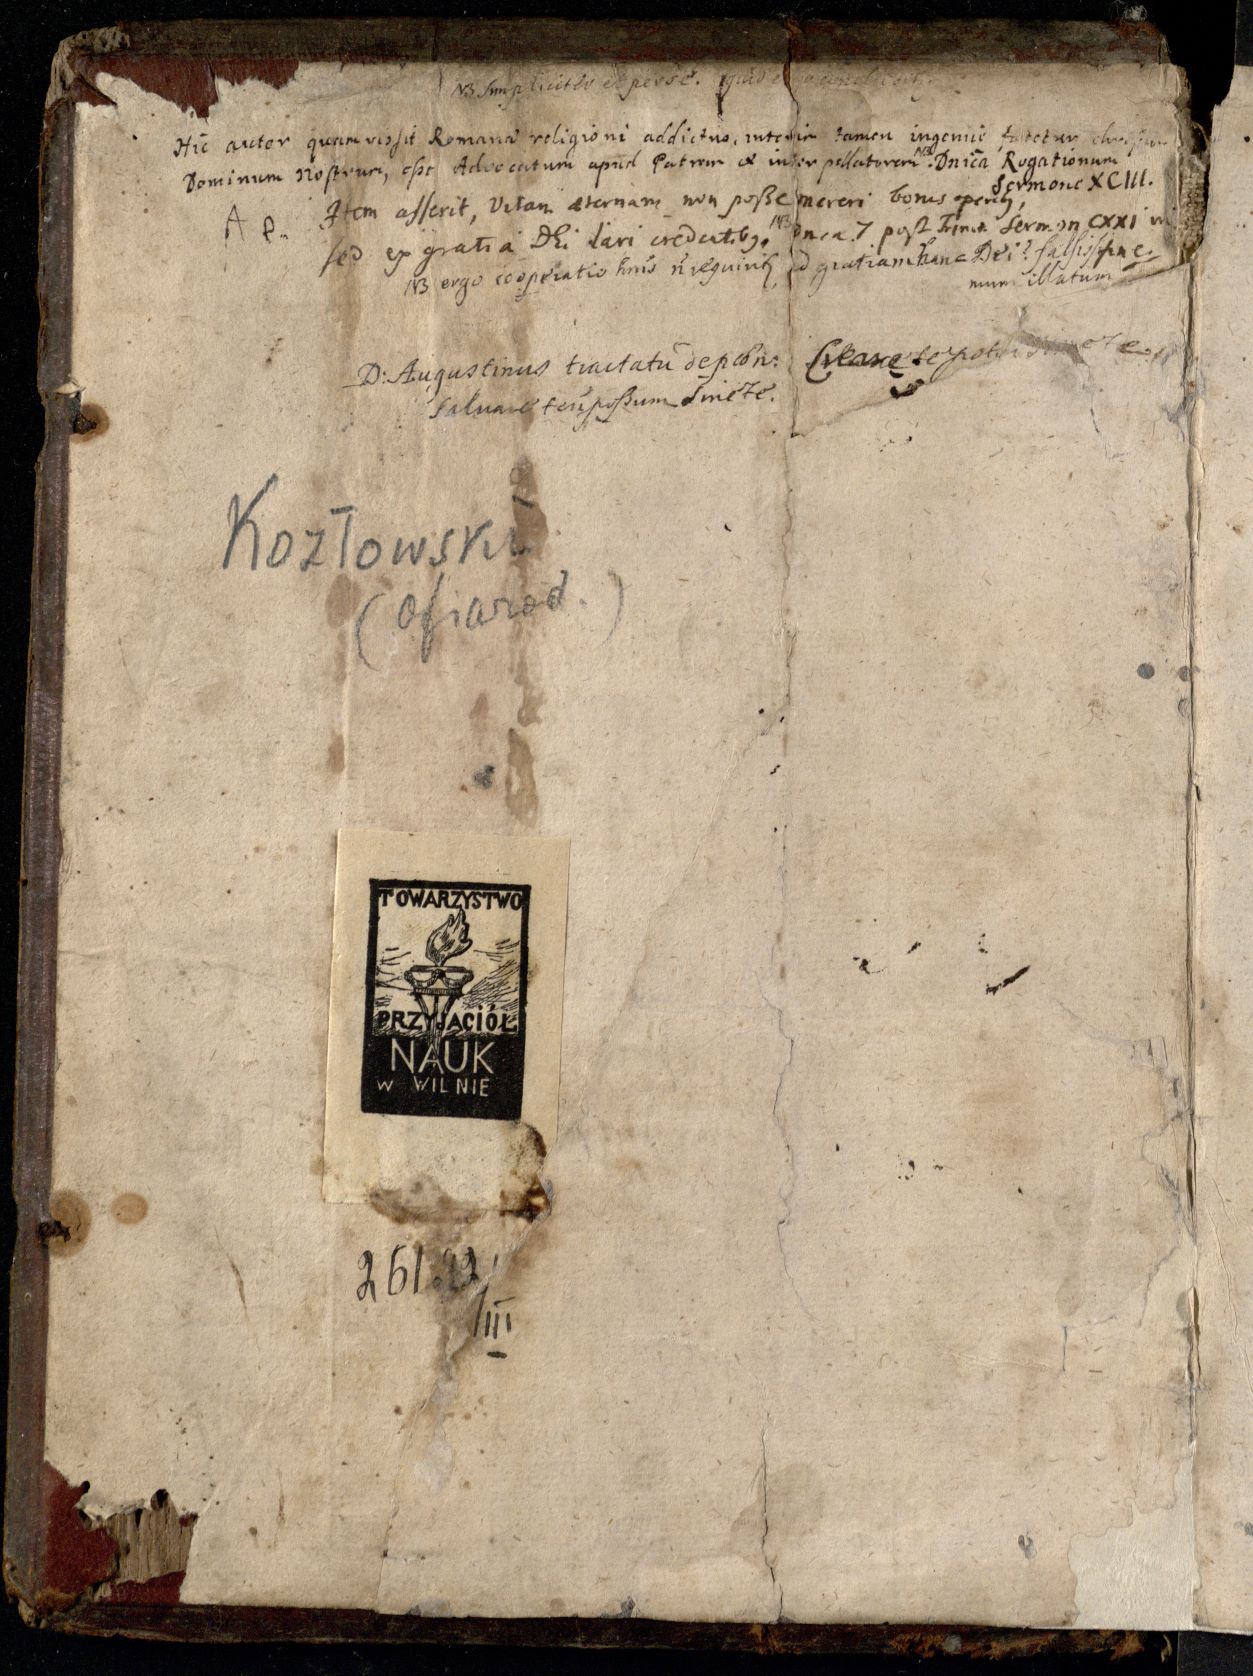 NB Simpliciter et per se.
Hic autor quamvis sit Romanae religioni addictus, interim tamen ingenue fatetur
Dominum Nostrum, esse Advocatum apud Patrem & interpellatorem. NB Dnica Rogationum
Sermone XCIII.
Item asserit, Vitam æternam non posse mereri bonis operib9,
A P.
sed ex gratia Dei dari credentib9. NB Dnca 7 post Trinit. Sermon CXXI
NB ergo cooperatio hnis requirit ad gratiam hanc Dei?
mum illatum
D: Augustinus tractatu de Creare te potui sine te.
salvare te possum sine te.
Kozłowski
(Ofiarod.)
TOWARZYSTWO
PRZYJACIÓŁ
NAUK
W WILNIE
261.22
/III